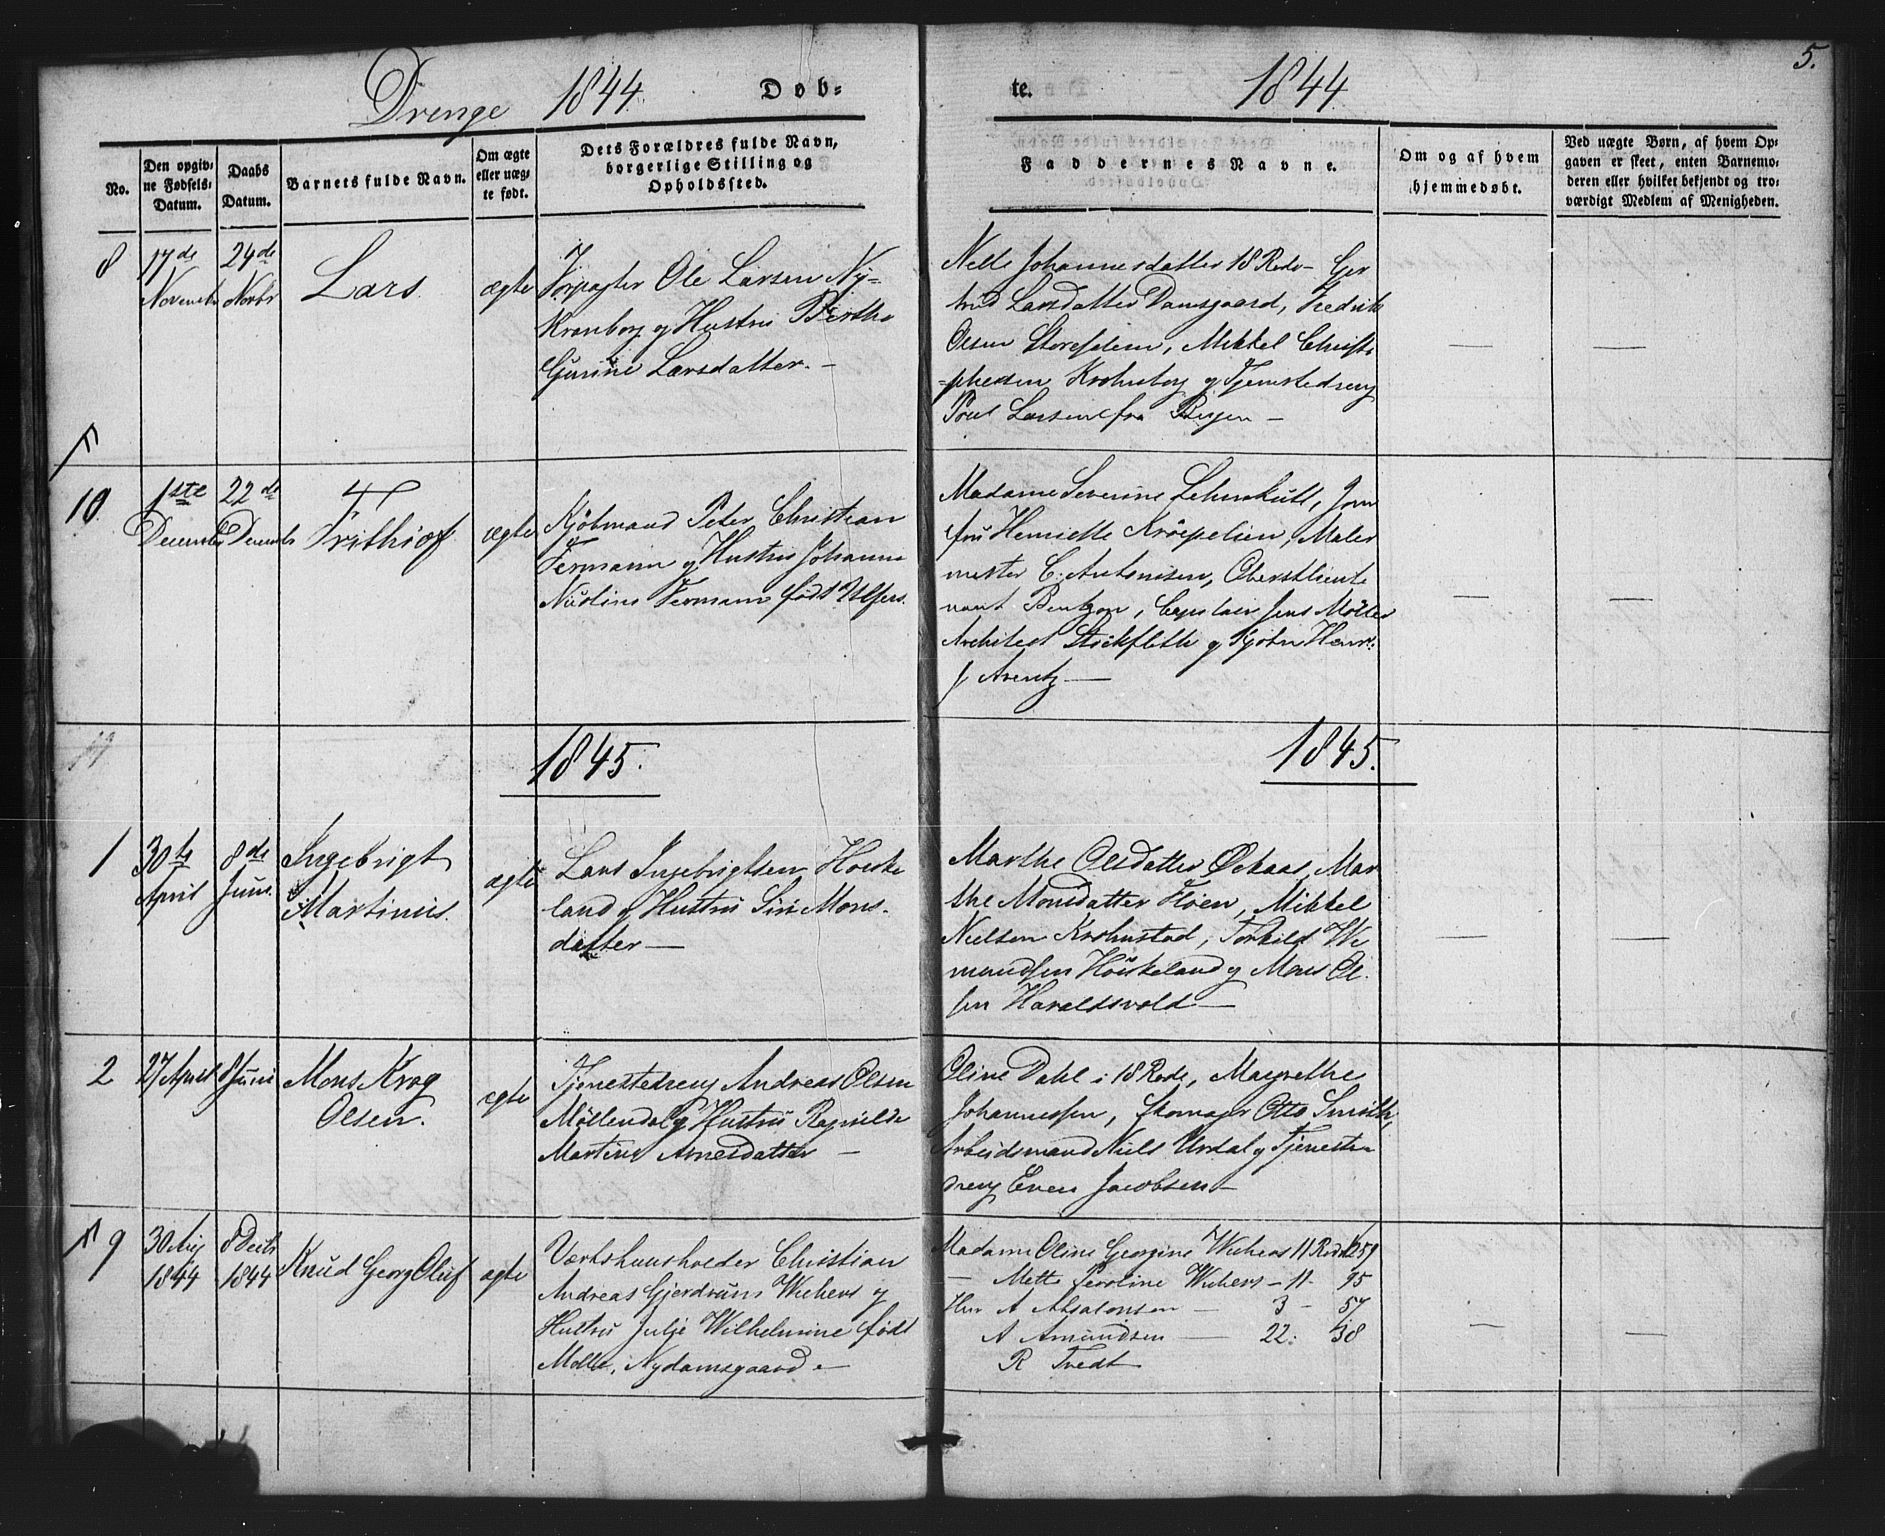 5.
Drenge 1844. Döb-
te. 1844
No.
Den opgiv-
ne Fødsels-
Datum.
Daabs
Datum.
Barnets fulde Navn.
Om ægte
eller uæg-
te født.
Dets Forældres fulde Navn,
borgerlige Stilling og
Opholdssted.
Faddernes Navne.
Om og af hvem
hjemmedøbt.
Ved uægte Børn, af hvem Op-
gaven er skeet, enten Barnemo-
deren eller hvilket bekjendt og tro-
værdigt Medlem af Menigheden.
8
17de
Novembr
24de
Novbr
Lars
ægte
Ole Larsen Ny-
Kronborg og Hustru Birthe
Gurine Larsdatter. -
Nelle Johannesdatter 18 Rode - Ger
trud Larsdatter Damsgaard, Fredrik
Olsen Mikkel Christo
-phersen Krohnborg og Tjenestedreng
Poul Larsen fra Bergen -
10
1ste
December
22de
Decembr
Frithiof
ægte
Kjøbmand Peter Christian
Fermann og Hustru Johanne
Fermann født Ulfers.
Madame Severine Lehmkuhl, Jom
fru Henriette Kröepelien, Maler
mester C. Antonisen, Oberstlieute
nant Bentzon, Jens Möller
Architect Stockfleth og Kjøbm Henr.
J Arentz -
1845.
1845.
1
30te
April
8de
Juni
Ingebrigt
Martinus.
ægte
Lars Ingebrigtsen Hoiske
land og Hustru Siri Mons-
datter -
Marthe Olsdatter Mar
the Monsdatter Floen, Mikkel
Nielsen Krohnstad, Torkild We
mundsen Höiskeland og Mons Ol-
sen Haraldsvold -
2
27 April
8 Juni
Mons Krog
Olsen.
ægte
Tjenestedreng Andreas Olsen
Möllendal og Hustru Ragnilde
Martine Arnesdatter -
Oline Dahl i 18 Rode, Magrethe
Johannessen, Skomager Otto Smith,
Arbeidsmand Niels Urdal og Tjeneste
dreng Even Jacobsen -
9
30 Aug
1844
8 Decbr
1844
Knud Georg Oluf
ægte
Værtshuusholder Christian
Andreas Gjerdrum Wiehers og
Hustru Julje Wilhelmine født
Nydamsgaard -
Madame Oline Georgine Wiehers 11 Rode 259
- Mette Wiehers - 11 - 95
Hrr A Absalonsen - 3 - 57
A Amundsen - 22: 38
R Tvedt